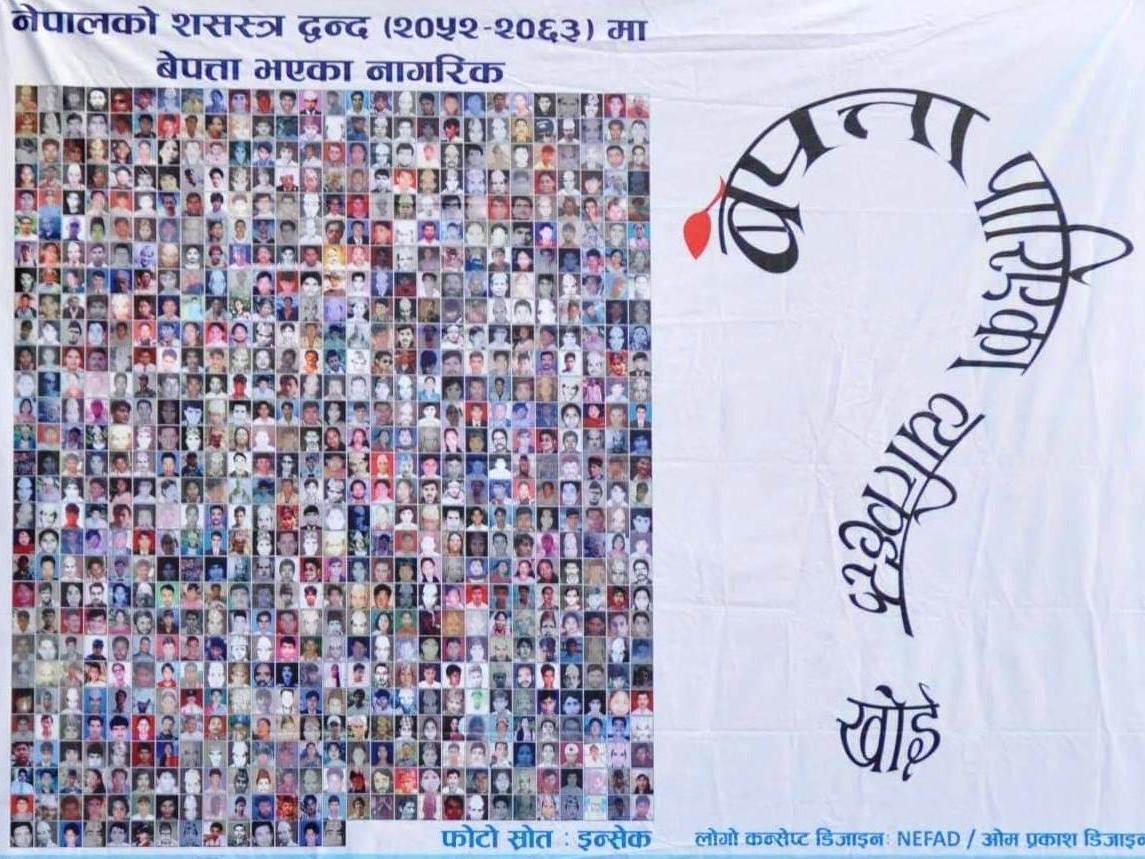 नेपालको शसस्त्र द्वन्द (२०५२-२०६३) मा
बेपत्ता भएका नागरिक
बेपत्ता पारिएका व्यक्तिहरू
खोई
फोटो स्रोत : इन्सेक
लोगो कन्सेप्ट डिजाइन: NEFAD / ओम प्रकाश डिजाइ